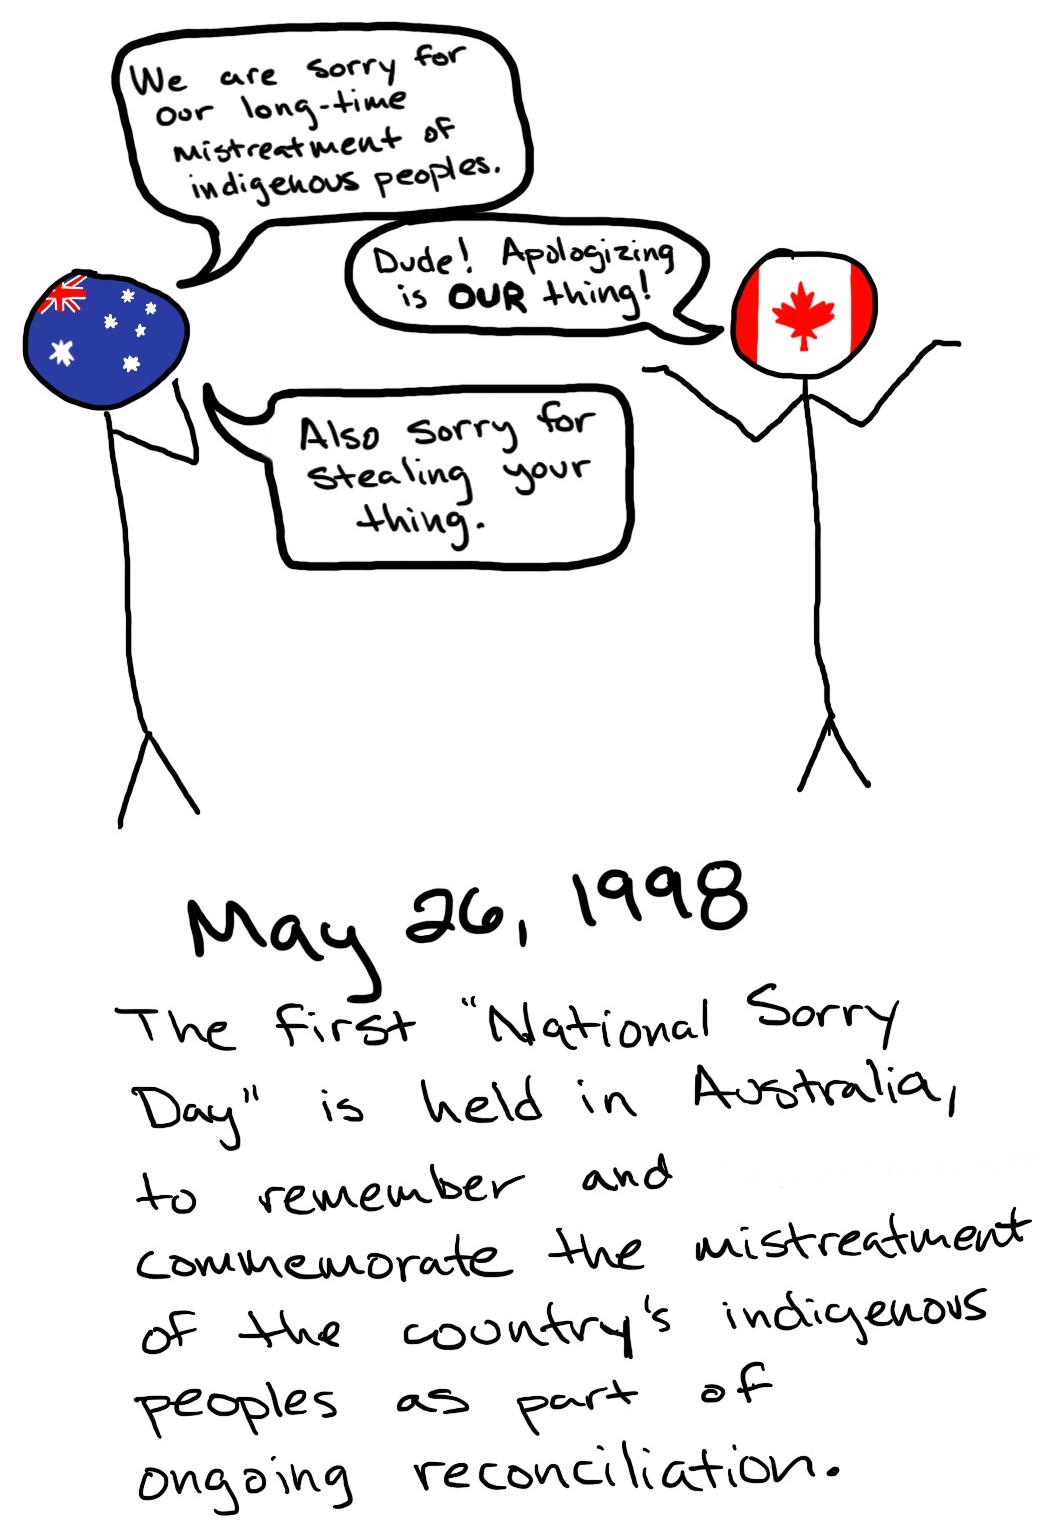 We are sorry for
our long-time
mistreatment of
indigenous peoples.
Dude! Apologizing
is OUR thing!
Also sorry for
stealing your
thing.
May 26, 1998
The first "National Sorry
Day" is held in Australia,
to remember and
commemorate the mistreatment
of the country's indigenous
peoples as part of
ongoing reconciliation.